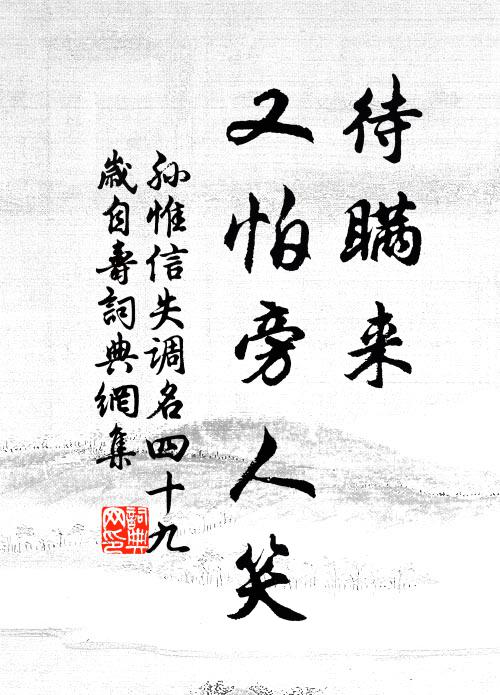 待瞒来
又怕旁人笑
孙惟信失调名四十九
岁自寿詞典網集
詞典网印